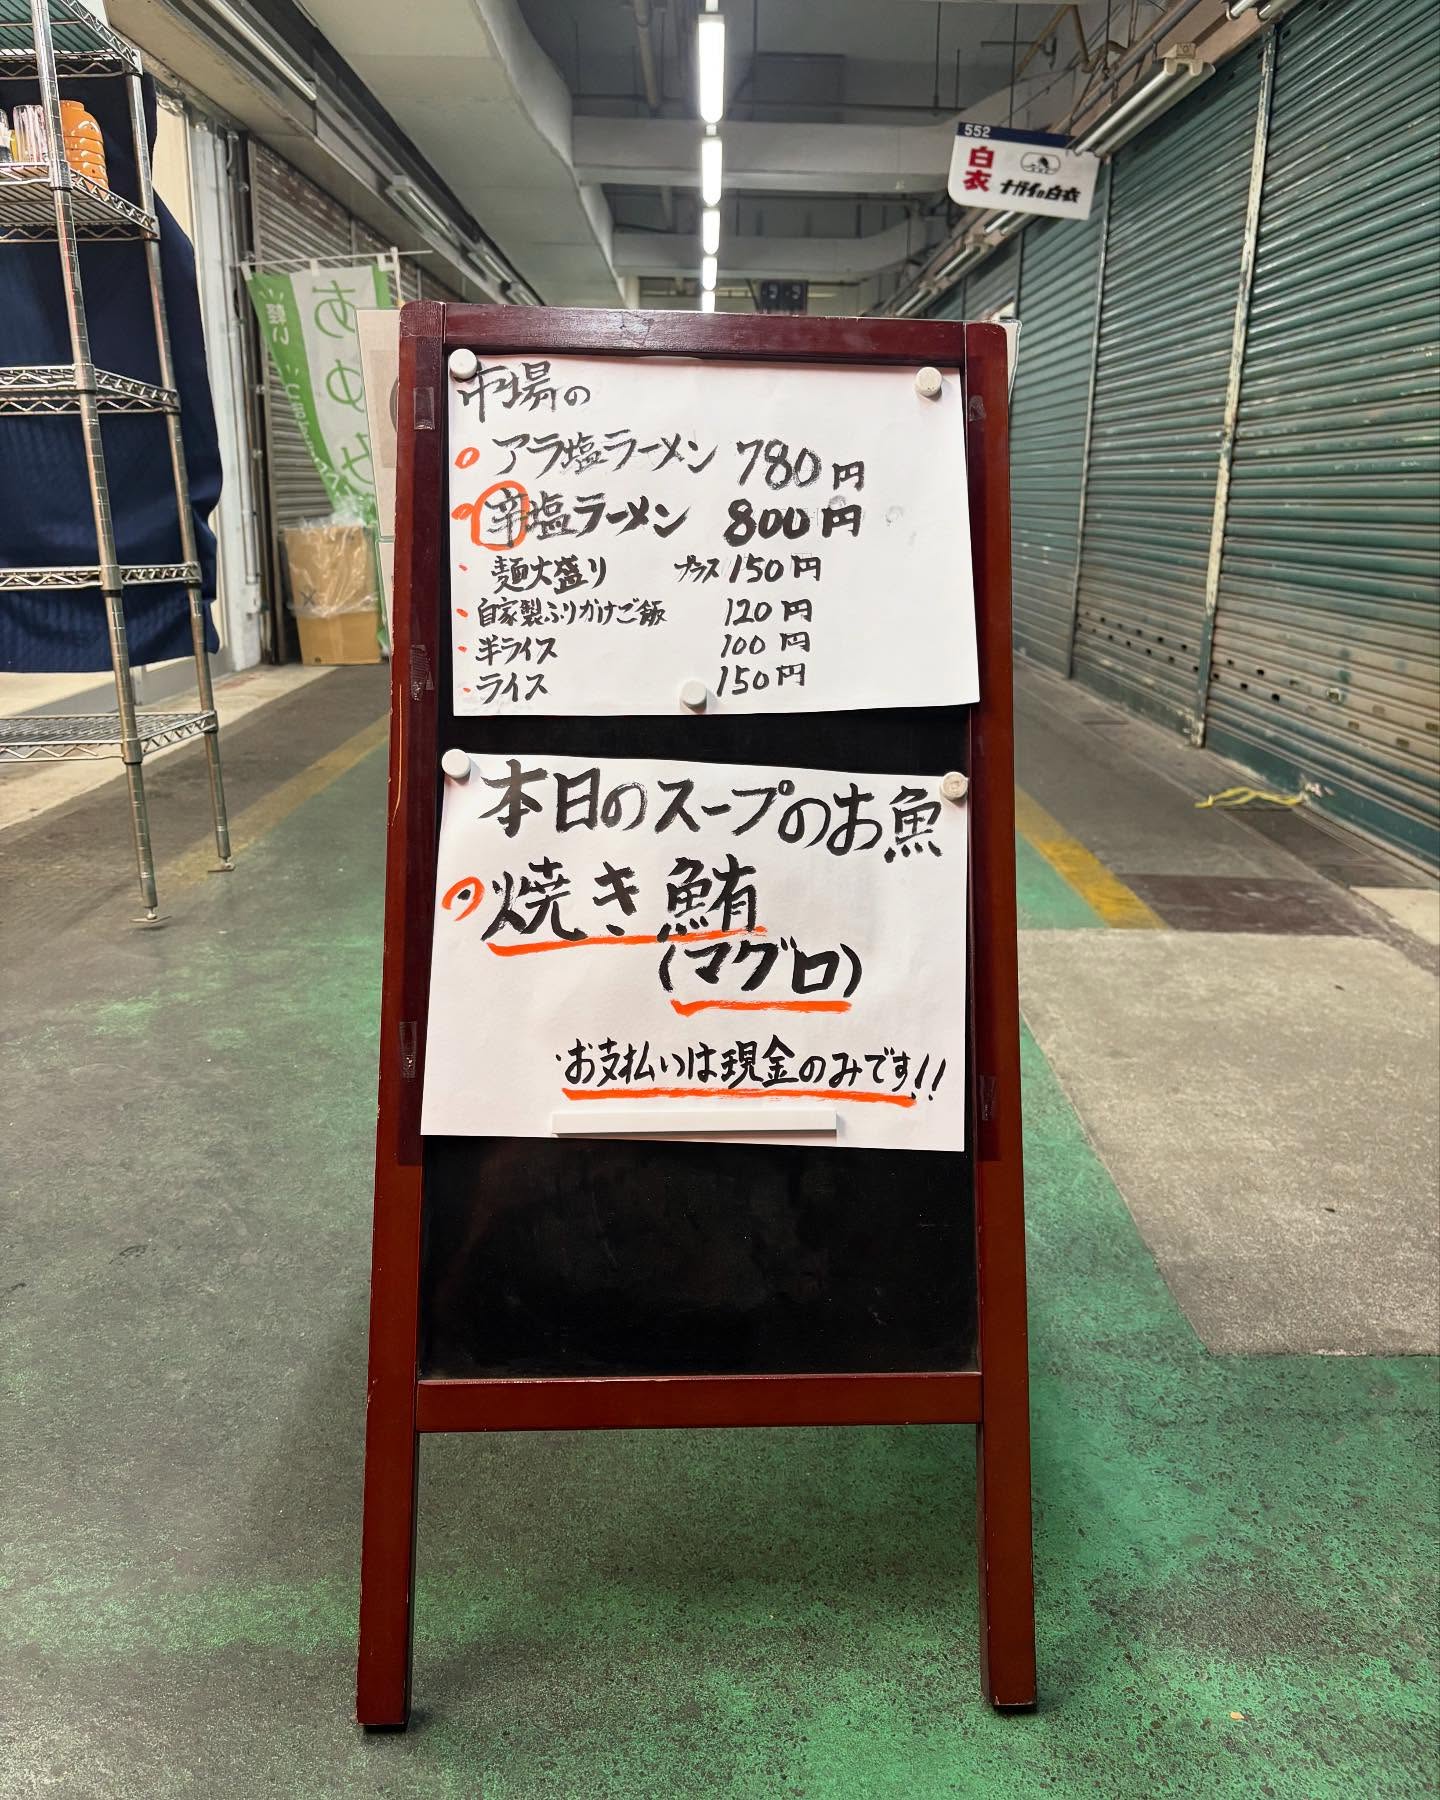 552
白衣
ナガイの白衣
あゆみ
市場の
アラ塩ラーメン 780円
辛塩ラーメン 800円
・麺大盛り プラス150円
・自家製ふりかけご飯 120円
・半ライス 100円
・ライス 150円
本日のスープのお魚
焼き鮪
(マグロ)
・お支払いは現金のみです!!